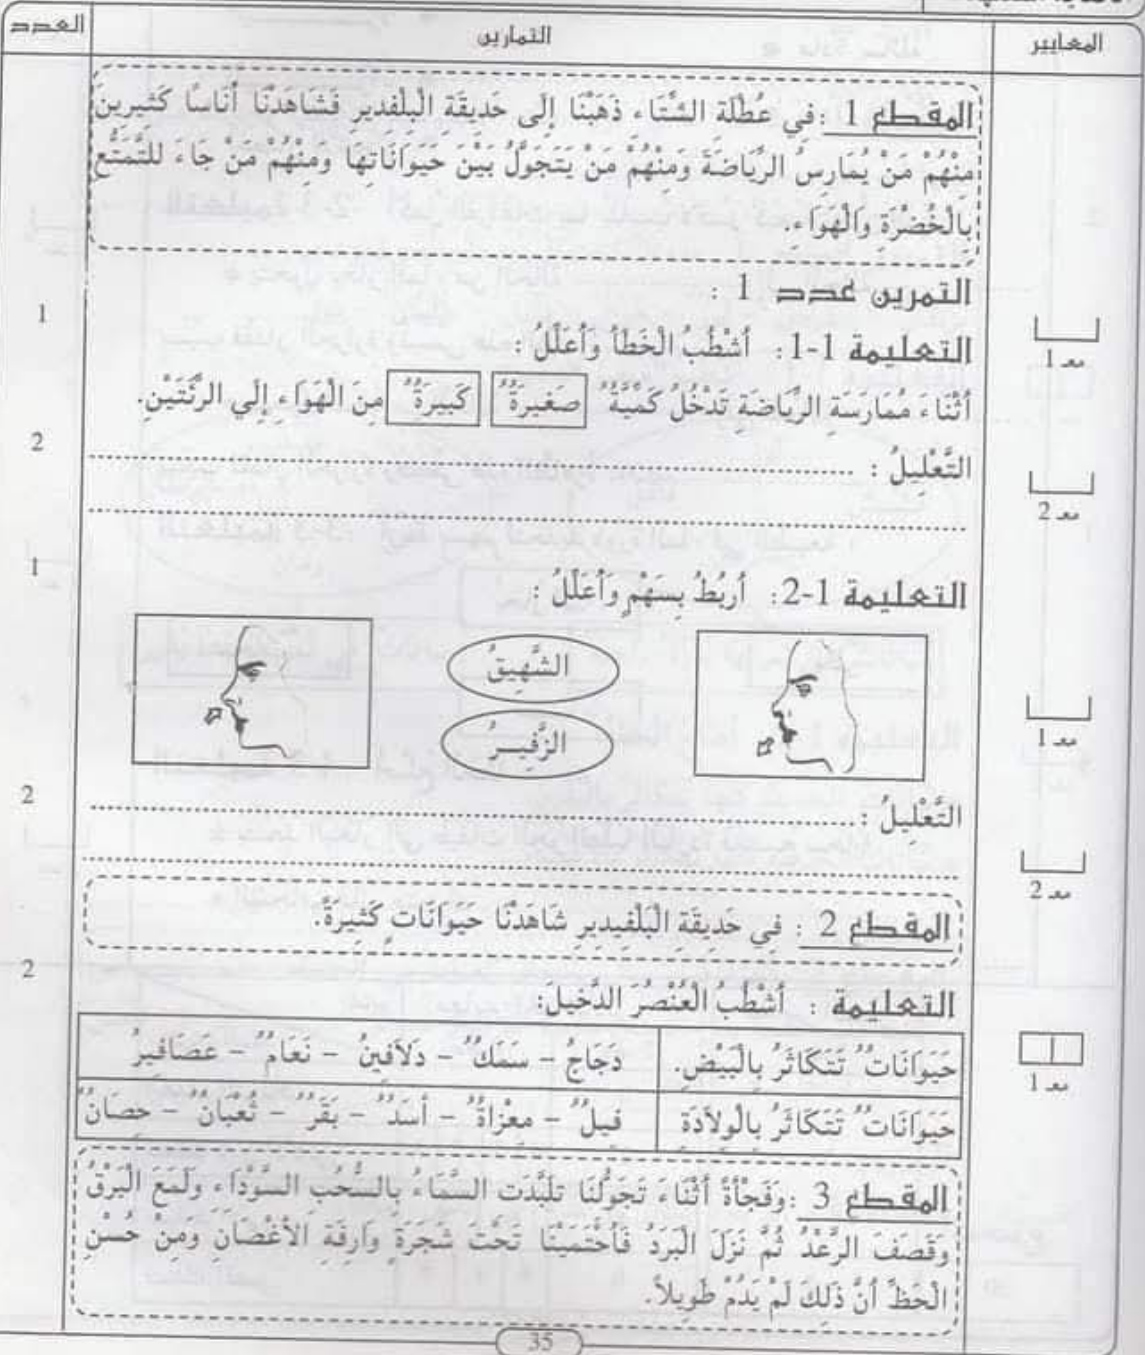 المعايير
التمارين
العدد
المقطع 1 : فِي عُطْلَةِ الشِّتَاءِ ذَهَبْنَا إِلَى حَدِيقَةِ الْبِلْفِدِيرِ فَشَاهَدْنَا أُنَاسًا كَثِيرِينَ
مِنْهُمْ مَنْ يُمَارِسُ الرِّيَاضَةَ وَمِنْهُمْ مَنْ يَتَجَوَّلُ بَيْنَ حَيَوَانَاتِهَا وَمِنْهُمْ مَنْ جَاءَ لِلتَّمَتُّعِ
بِالْخُضْرَةِ وَالْهَوَاءِ.
التمرين عدد 1 :
1
التعليمة 1-1: أَشْطُبُ الْخَطَأَ وَأُعَلِّلُ :
مع 1
أَثْنَاءَ مُمَارَسَةِ الرِّيَاضَةِ تَدْخُلُ كَمِّيَّةٌ صَغِيرَةٌ كَبِيرَةٌ مِنَ الْهَوَاءِ إِلَي الرِّئَتَيْنِ.
2
التَّعْلِيلُ : ........................
مع 2
........................
1
التعليمة 1-2: أَرْبُطُ بِسَهْمٍ وَأُعَلِّلُ :
الشَّهِيقُ
الزَّفِيرُ
مع 1
2
التَّعْلِيلُ : ........................
مع 2
........................
المقطع 2 : فِي حَدِيقَةِ الْبَلْفِيدِيرِ شَاهَدْنَا حَيَوَانَاتٍ كَثِيرَةً.
2
التعليمة : أَشْطُبُ الْعُنْصُرَ الدَّخِيلَ:
حَيَوَانَاتٌ تَتَكَاثَرُ بِالْبَيْضِ. دَجَاجُ – سَمَكٌ – دَلاَفِينُ – نَعَامٌ – عَصَافِيرُ
مع 1
حَيَوَانَاتٌ تَتَكَاثَرُ بِالْوِلاَدَةِ فِيلٌ – مِعْزَاةٌ – أَسَدٌ – بَقَرٌ – ثُعْبَانٌ – حِصَانٌ
المقطع 3 : وَفَجْأَةً أَثْنَاءَ تَجَوُّلِنَا تَلَبَّدَتِ السَّمَاءُ بِالسُّحُبِ السَّوْدَاءِ وَلَمَعَ الْبَرْقُ
وَقَصَفَ الرَّعْدُ ثُمَّ نَزَلَ الْبَرَدُ فَاحْتَمَيْنَا تَحْتَ شَجَرَةٍ وَارِفَةِ الأَغْصَانِ وَمِنْ حُسْنِ
الْحَظِّ أَنَّ ذَلِكَ لَمْ يَدُمْ طَوِيلاً.
35